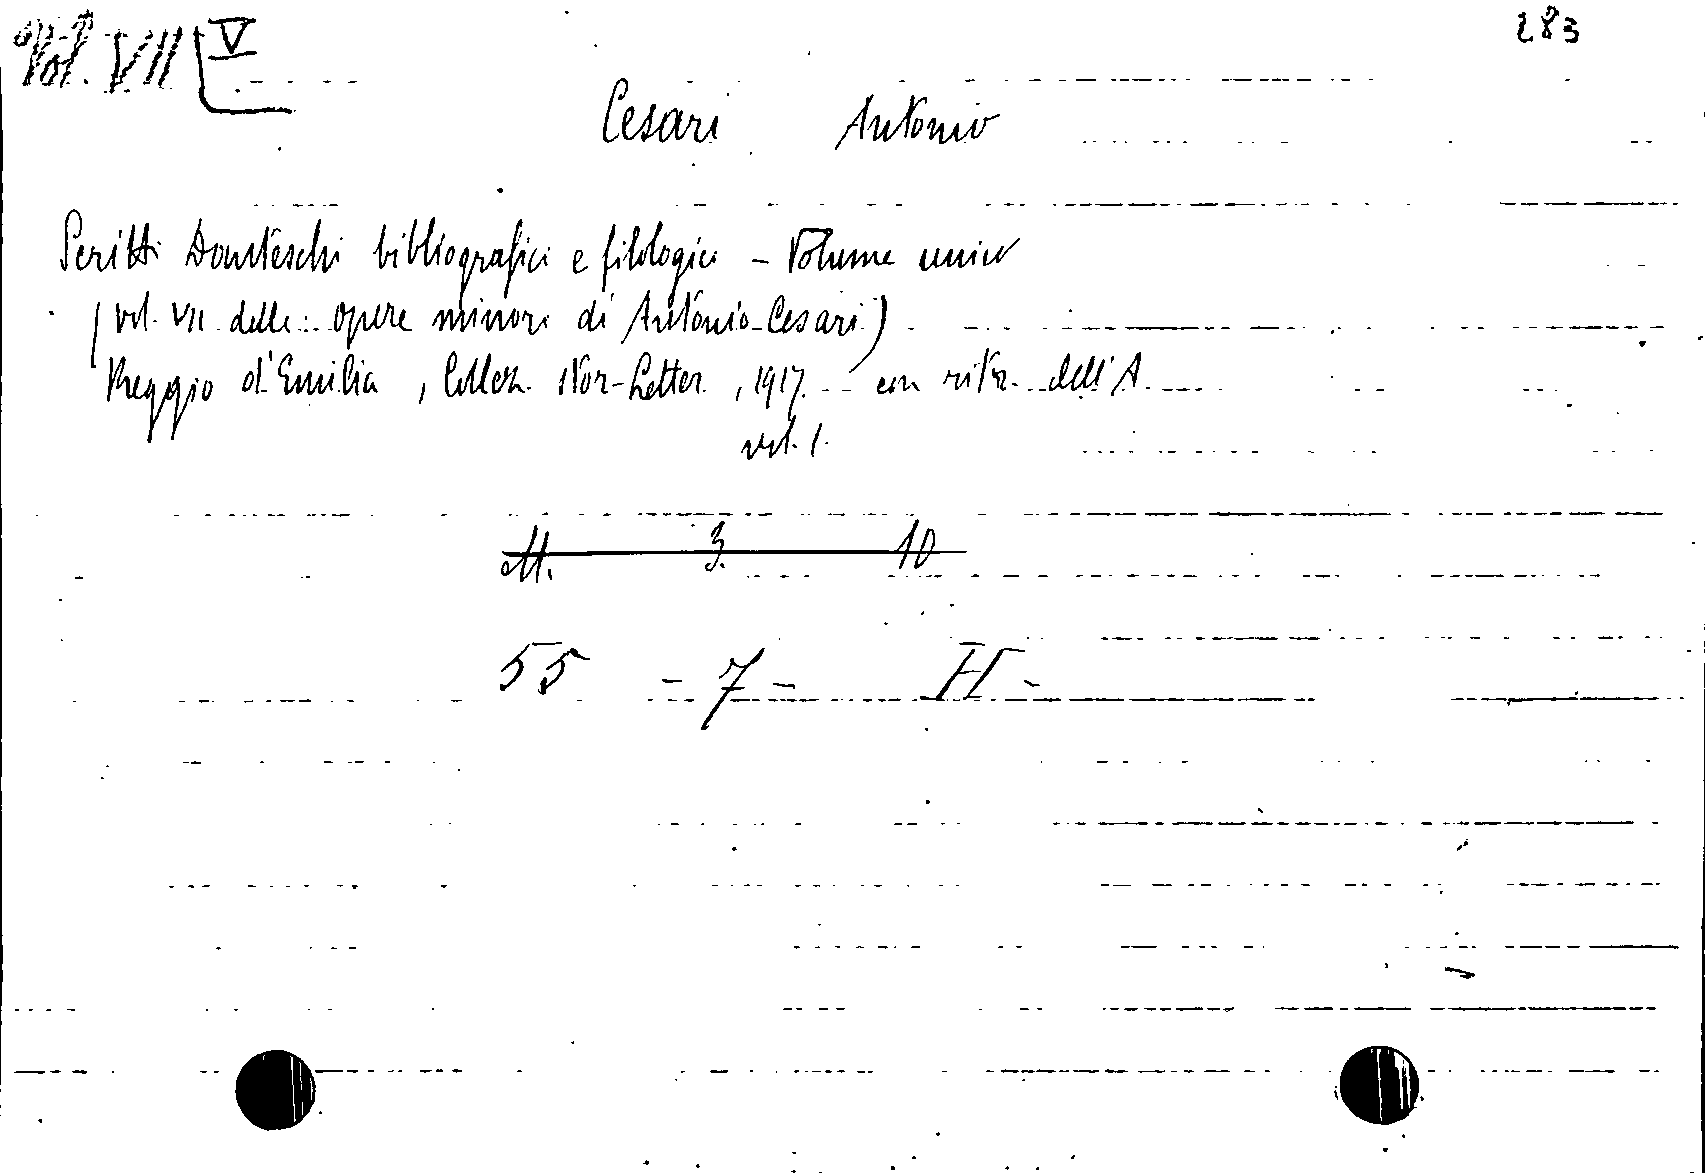 Vol. VII V
283
Cesari Antonio
Scritti Danteschi bibliografici e filologici - Volume unico
(vol. VII delle: opere minori di Antonio Cesari)
Reggio d'Emilia, Collez. Letter., 1917. con ritr. dell'A.
vol. 1.
M. 3. 10
55 - 7 - H -